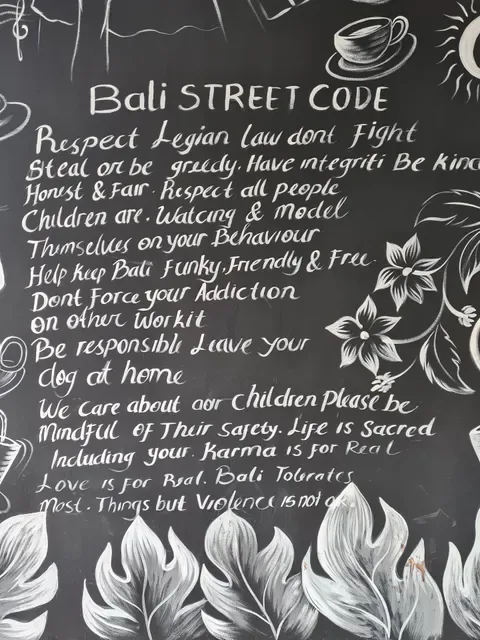 Bali STREET CODE
Respect Legian law dont Fight
Steal or be greedy. Have integriti Be Kind
Honest & Fair. Respect all people
Children are. Watcing & Model
Themselves on your Behaviour
Help Keep Bali Funky, Friendly & Free
Dont Force your Addiction
on other Workit
Be responsible Leave your
dog at home
We Care about our Children Please be
Mindful of Their Safety. Life is Sacred
Including your. Karma is for Real
Love is for Real. Bali Tolerates
Most. Things but Violence is not ok.